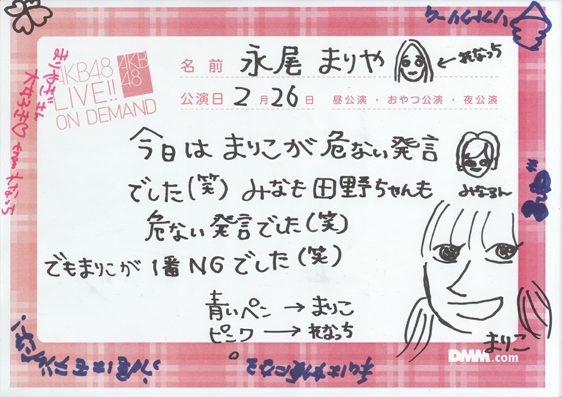 名前 永尾 まりや ← れなっち
AKB48
LIVE!!
ON DEMAND
AKB
48
公演日 2月26日 昼公演・おやつ公演・夜公演
今日は まりこが 危ない発言
でした(笑) みなも 田野ちゃんも
みなるん
危ない発言でした(笑)
でもまりこが 1番NGでした(笑)
青いペン → まりこ
ピンク → れなっち
まりこ
DMM.com